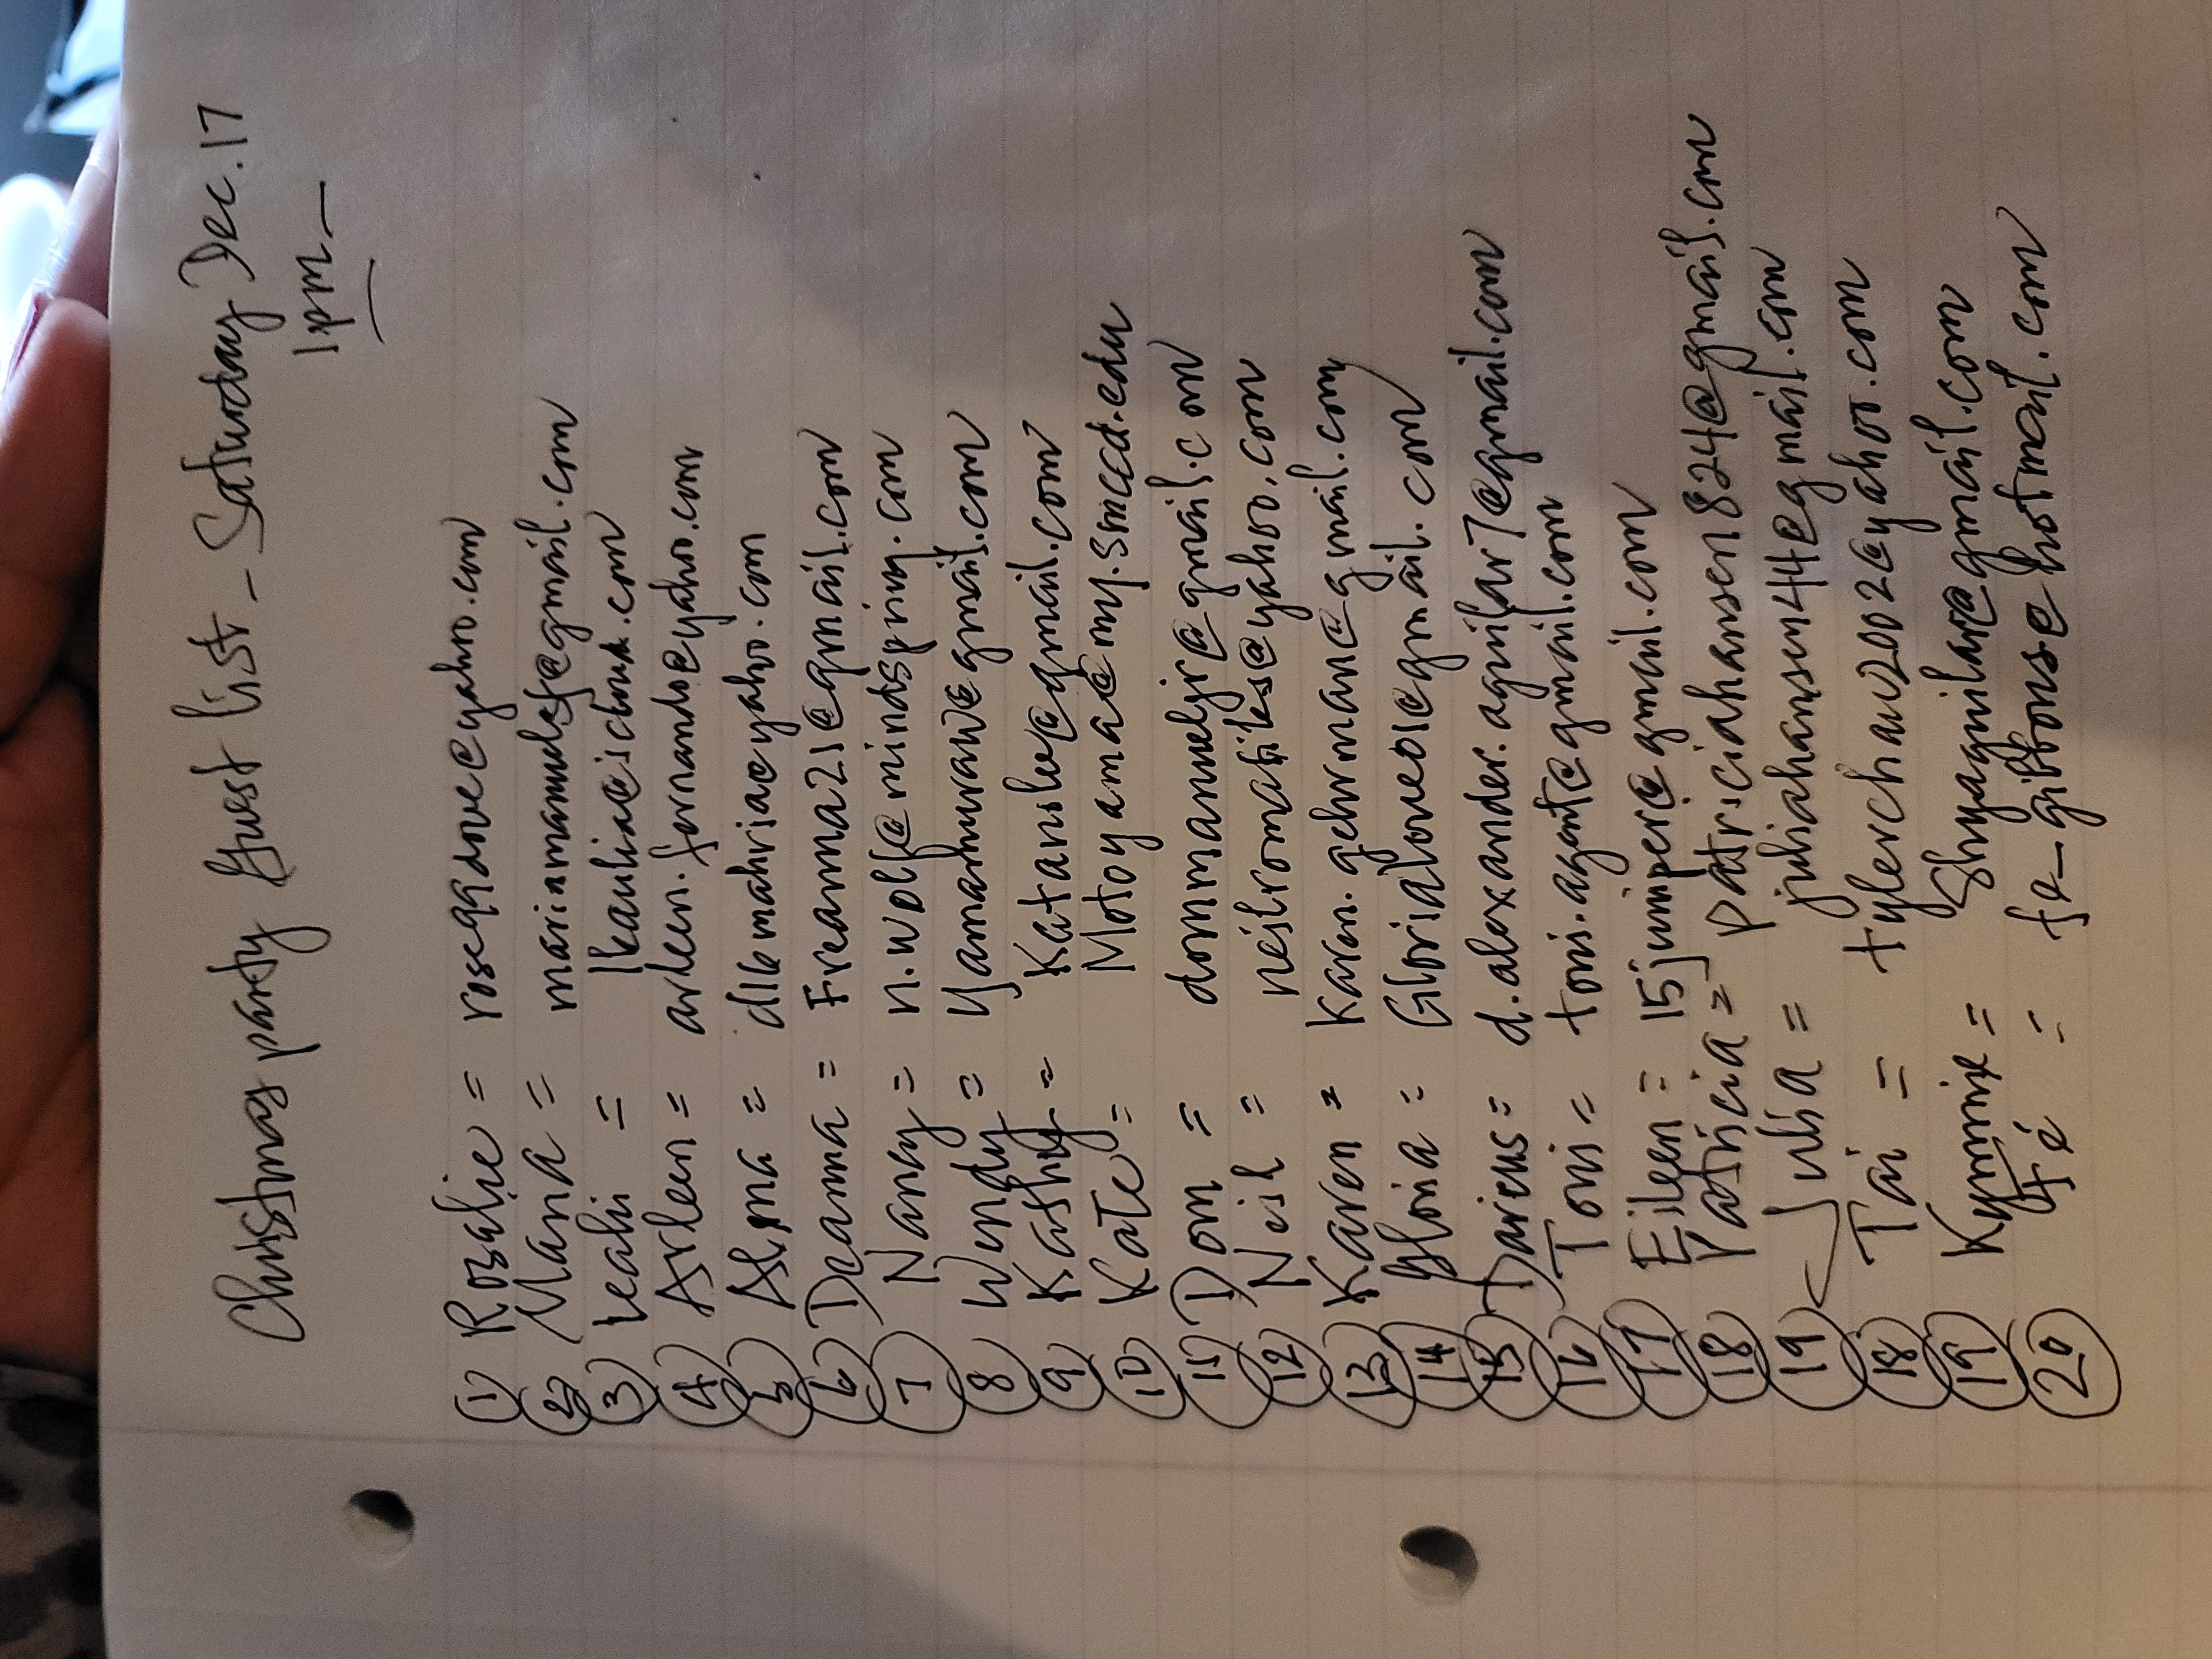 Christmas party Guest list - Saturday Dec. 17
1pm -
1 Rosalie = rose99dove@yahoo.com
2 Maria = mariamanuelsf@gmail.com
3 Leahi = lkaulia@icloud.com
4 Arleen = arleen.fernando@yahoo.com
5 Alma = d16mahria@yahoo.com
6 Deanna = Freanna21@gmail.com
7 Nancy = n.wolf@mindspring.com
8 Wendy = Yamamuraw@gmail.com
9 Kathy = @gmail.com
10 Kate = Motoyama@my.smccd.edu
11 Dom = dommanueljr@gmail.com
12 Neil = @yahoo.com
13 Karen = Karen.gehrman@gmail.com
14 Gloria = Glorialove01@gmail.com
15 Darius = d.alexander.aguilar7@gmail.com
16 Toni = toni.agent@gmail.com
17 Eileen = 15juniper@gmail.com
18 Patricia = patriciahansen824@gmail.com
19 Julia = juliahansen44@gmail.com
18 Tai = tylerchau2002@yahoo.com
19 Kymmie = Shyaguilar@gmail.com
20 Fé = fe_gibbons@hotmail.com